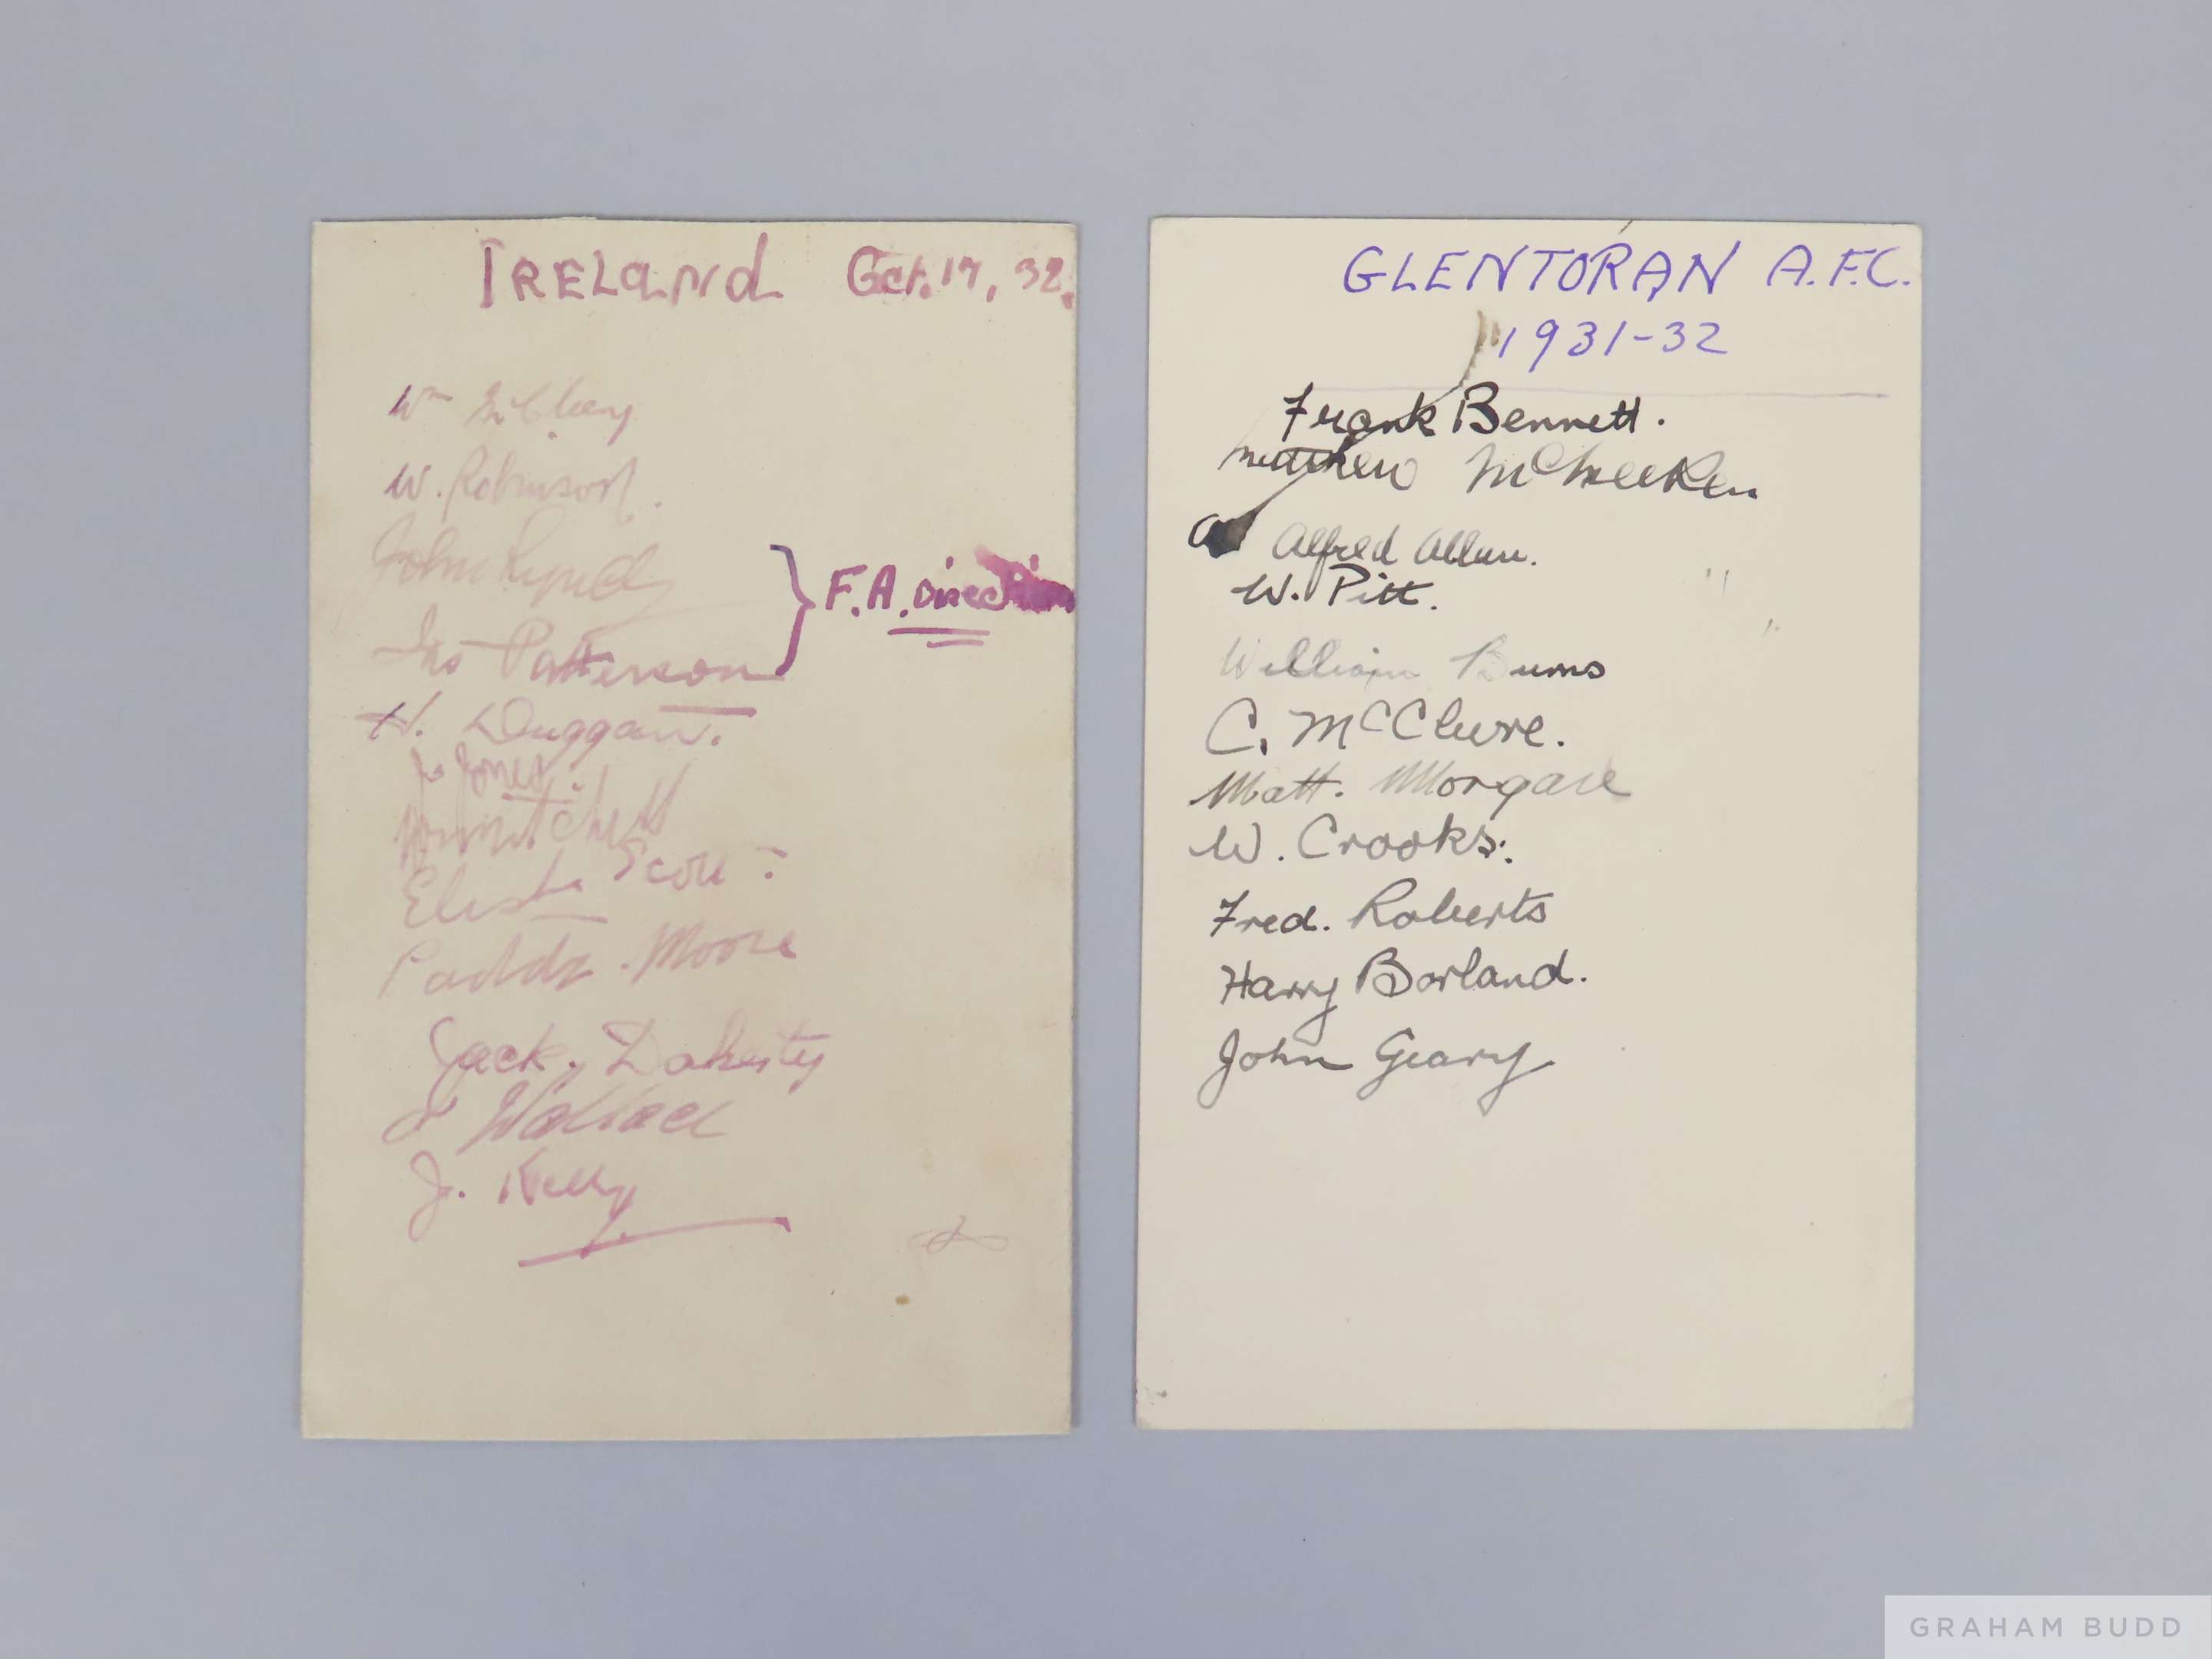 IRELand Oct. 17, 32.
Wm
W. Robinson.
John
Patterson
F.A. Direc
H. Duggan.
Jones.
Wm Mitchell
Elisha Scott
Paddy. Moore
Jack. Doherty
J Wallace
J. Kelly
GLENTORAN A.F.C.
1931-32
Frank Bennett.
Matthew McMeeken
Alfred Allan.
W. Pitt.
William Burns
C. McClure.
Matt. Morgan
W. Crooks.
Fred. Roberts
Harry Borland.
John Geary
GRAHAM BUDD